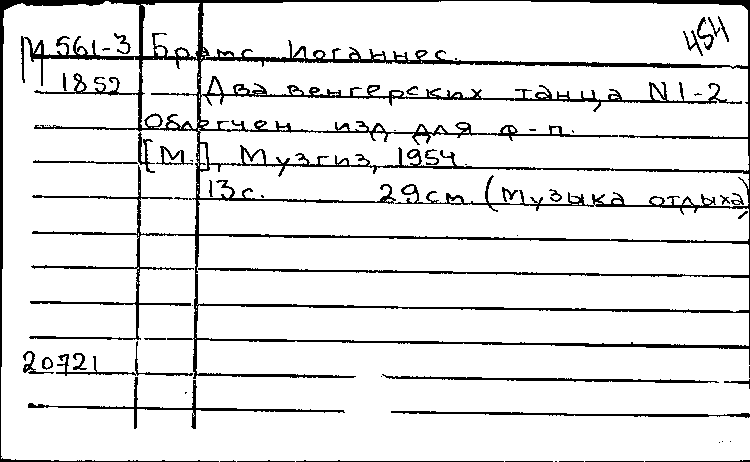 454
М 561-3 Брамс, Иоганнес.
1852 Два венгерских танца N 1-2
Облегчен. изд. для ф-п.
[М.], Музгиз, 1954.
13с. 29см. (Музыка отдыха)
20721